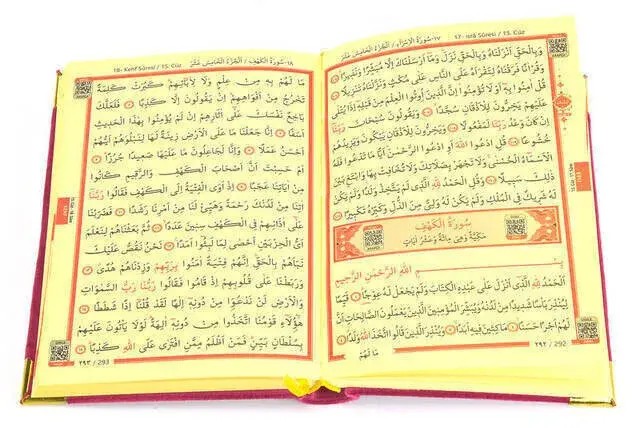 ١٧-سُورَةُ الْإِسْرَاءِ / اَلْجُزْءُ الْخَامِسُ عَشَرَ 17- İsrâ Sûresi / 15. Cüz
وَبِالْحَقِّ اَنْزَلْنَاهُ وَبِالْحَقِّ نَزَلَ وَمَا اَرْسَلْنَاكَ اِلَّا مُبَشِّرًا وَنَذِيرًا ١٠٥
وَقُرْاٰنًا فَرَقْنَاهُ لِتَقْرَاَهُ عَلَى النَّاسِ عَلٰى مُكْثٍ وَنَزَّلْنَاهُ تَنْزِيلًا ١٠٦
قُلْ اٰمِنُوا بِهِ اَوْ لَا تُؤْمِنُوا اِنَّ الَّذِينَ اُوتُوا الْعِلْمَ مِنْ قَبْلِهِ اِذَا يُتْلٰى
عَلَيْهِمْ يَخِرُّونَ لِلْاَذْقَانِ سُجَّدًا ١٠٧ وَيَقُولُونَ سُبْحَانَ رَبِّنَا
اِنْ كَانَ وَعْدُ رَبِّنَا لَمَفْعُولًا ١٠٨ وَيَخِرُّونَ لِلْاَذْقَانِ يَبْكُونَ وَيَزِيدُهُمْ
خُشُوعًا ١٠٩ قُلِ ادْعُوا اللّٰهَ اَوِ ادْعُوا الرَّحْمٰنَ اَيًّا مَا تَدْعُوا فَلَهُ
الْاَسْمَاءُ الْحُسْنٰى وَلَا تَجْهَرْ بِصَلَاتِكَ وَلَا تُخَافِتْ بِهَا وَابْتَغِ بَيْنَ
ذٰلِكَ سَبِيلًا ١١٠ وَقُلِ الْحَمْدُ لِلّٰهِ الَّذِي لَمْ يَتَّخِذْ وَلَدًا وَلَمْ يَكُنْ
لَهُ شَرِيكٌ فِي الْمُلْكِ وَلَمْ يَكُنْ لَهُ وَلِيٌّ مِنَ الذُّلِّ وَكَبِّرْهُ تَكْبِيرًا ١١١
سُورَةُ الْكَهْفِ
مَكِّيَّةٌ وَهِيَ مِائَةٌ وَعَشْرُ اٰيَاتٍ
بِسْمِ اللّٰهِ الرَّحْمٰنِ الرَّحِيمِ
اَلْحَمْدُ لِلّٰهِ الَّذِي اَنْزَلَ عَلٰى عَبْدِهِ الْكِتَابَ وَلَمْ يَجْعَلْ لَهُ عِوَجًا ١ قَيِّمًا
لِيُنْذِرَ بَأْسًا شَدِيدًا مِنْ لَدُنْهُ وَيُبَشِّرَ الْمُؤْمِنِينَ الَّذِينَ يَعْمَلُونَ الصَّالِحَاتِ اَنَّ
لَهُمْ اَجْرًا حَسَنًا ٢ مَاكِثِينَ فِيهِ اَبَدًا ٣ وَيُنْذِرَ الَّذِينَ قَالُوا اتَّخَذَ اللّٰهُ وَلَدًا ٤
مَا لَهُمْ
٢٩٢ / 292
18- Kehf Sûresi / 15. Cüz ١٨-سُورَةُ الْكَهْفِ / اَلْجُزْءُ الْخَامِسُ عَشَرَ
مَا لَهُمْ بِهِ مِنْ عِلْمٍ وَلَا لِاٰبَائِهِمْ كَبُرَتْ كَلِمَةً
تَخْرُجُ مِنْ اَفْوَاهِهِمْ اِنْ يَقُولُونَ اِلَّا كَذِبًا ٥ فَلَعَلَّكَ
بَاخِعٌ نَفْسَكَ عَلٰى اٰثَارِهِمْ اِنْ لَمْ يُؤْمِنُوا بِهٰذَا الْحَدِيثِ
اَسَفًا ٦ اِنَّا جَعَلْنَا مَا عَلَى الْاَرْضِ زِينَةً لَهَا لِنَبْلُوَهُمْ اَيُّهُمْ
اَحْسَنُ عَمَلًا ٧ وَاِنَّا لَجَاعِلُونَ مَا عَلَيْهَا صَعِيدًا جُرُزًا ٨
اَمْ حَسِبْتَ اَنَّ اَصْحَابَ الْكَهْفِ وَالرَّقِيمِ كَانُوا
مِنْ اٰيَاتِنَا عَجَبًا ٩ اِذْ اَوَى الْفِتْيَةُ اِلَى الْكَهْفِ فَقَالُوا رَبَّنَا
اٰتِنَا مِنْ لَدُنْكَ رَحْمَةً وَهَيِّئْ لَنَا مِنْ اَمْرِنَا رَشَدًا ١٠ فَضَرَبْنَا
عَلٰى اٰذَانِهِمْ فِي الْكَهْفِ سِنِينَ عَدَدًا ١١ ثُمَّ بَعَثْنَاهُمْ لِنَعْلَمَ
اَيُّ الْحِزْبَيْنِ اَحْصٰى لِمَا لَبِثُوا اَمَدًا ١٢ نَحْنُ نَقُصُّ عَلَيْكَ
نَبَاَهُمْ بِالْحَقِّ اِنَّهُمْ فِتْيَةٌ اٰمَنُوا بِرَبِّهِمْ وَزِدْنَاهُمْ هُدًى ١٣
وَرَبَطْنَا عَلٰى قُلُوبِهِمْ اِذْ قَامُوا فَقَالُوا رَبُّنَا رَبُّ السَّمٰوَاتِ
وَالْاَرْضِ لَنْ نَدْعُوَا مِنْ دُونِهِ اِلٰهًا لَقَدْ قُلْنَا اِذًا شَطَطًا ١٤
هٰؤُلَاءِ قَوْمُنَا اتَّخَذُوا مِنْ دُونِهِ اٰلِهَةً لَوْلَا يَأْتُونَ عَلَيْهِمْ
بِسُلْطَانٍ بَيِّنٍ فَمَنْ اَظْلَمُ مِمَّنِ افْتَرٰى عَلَى اللّٰهِ كَذِبًا ١٥
٢٩٣ / 293